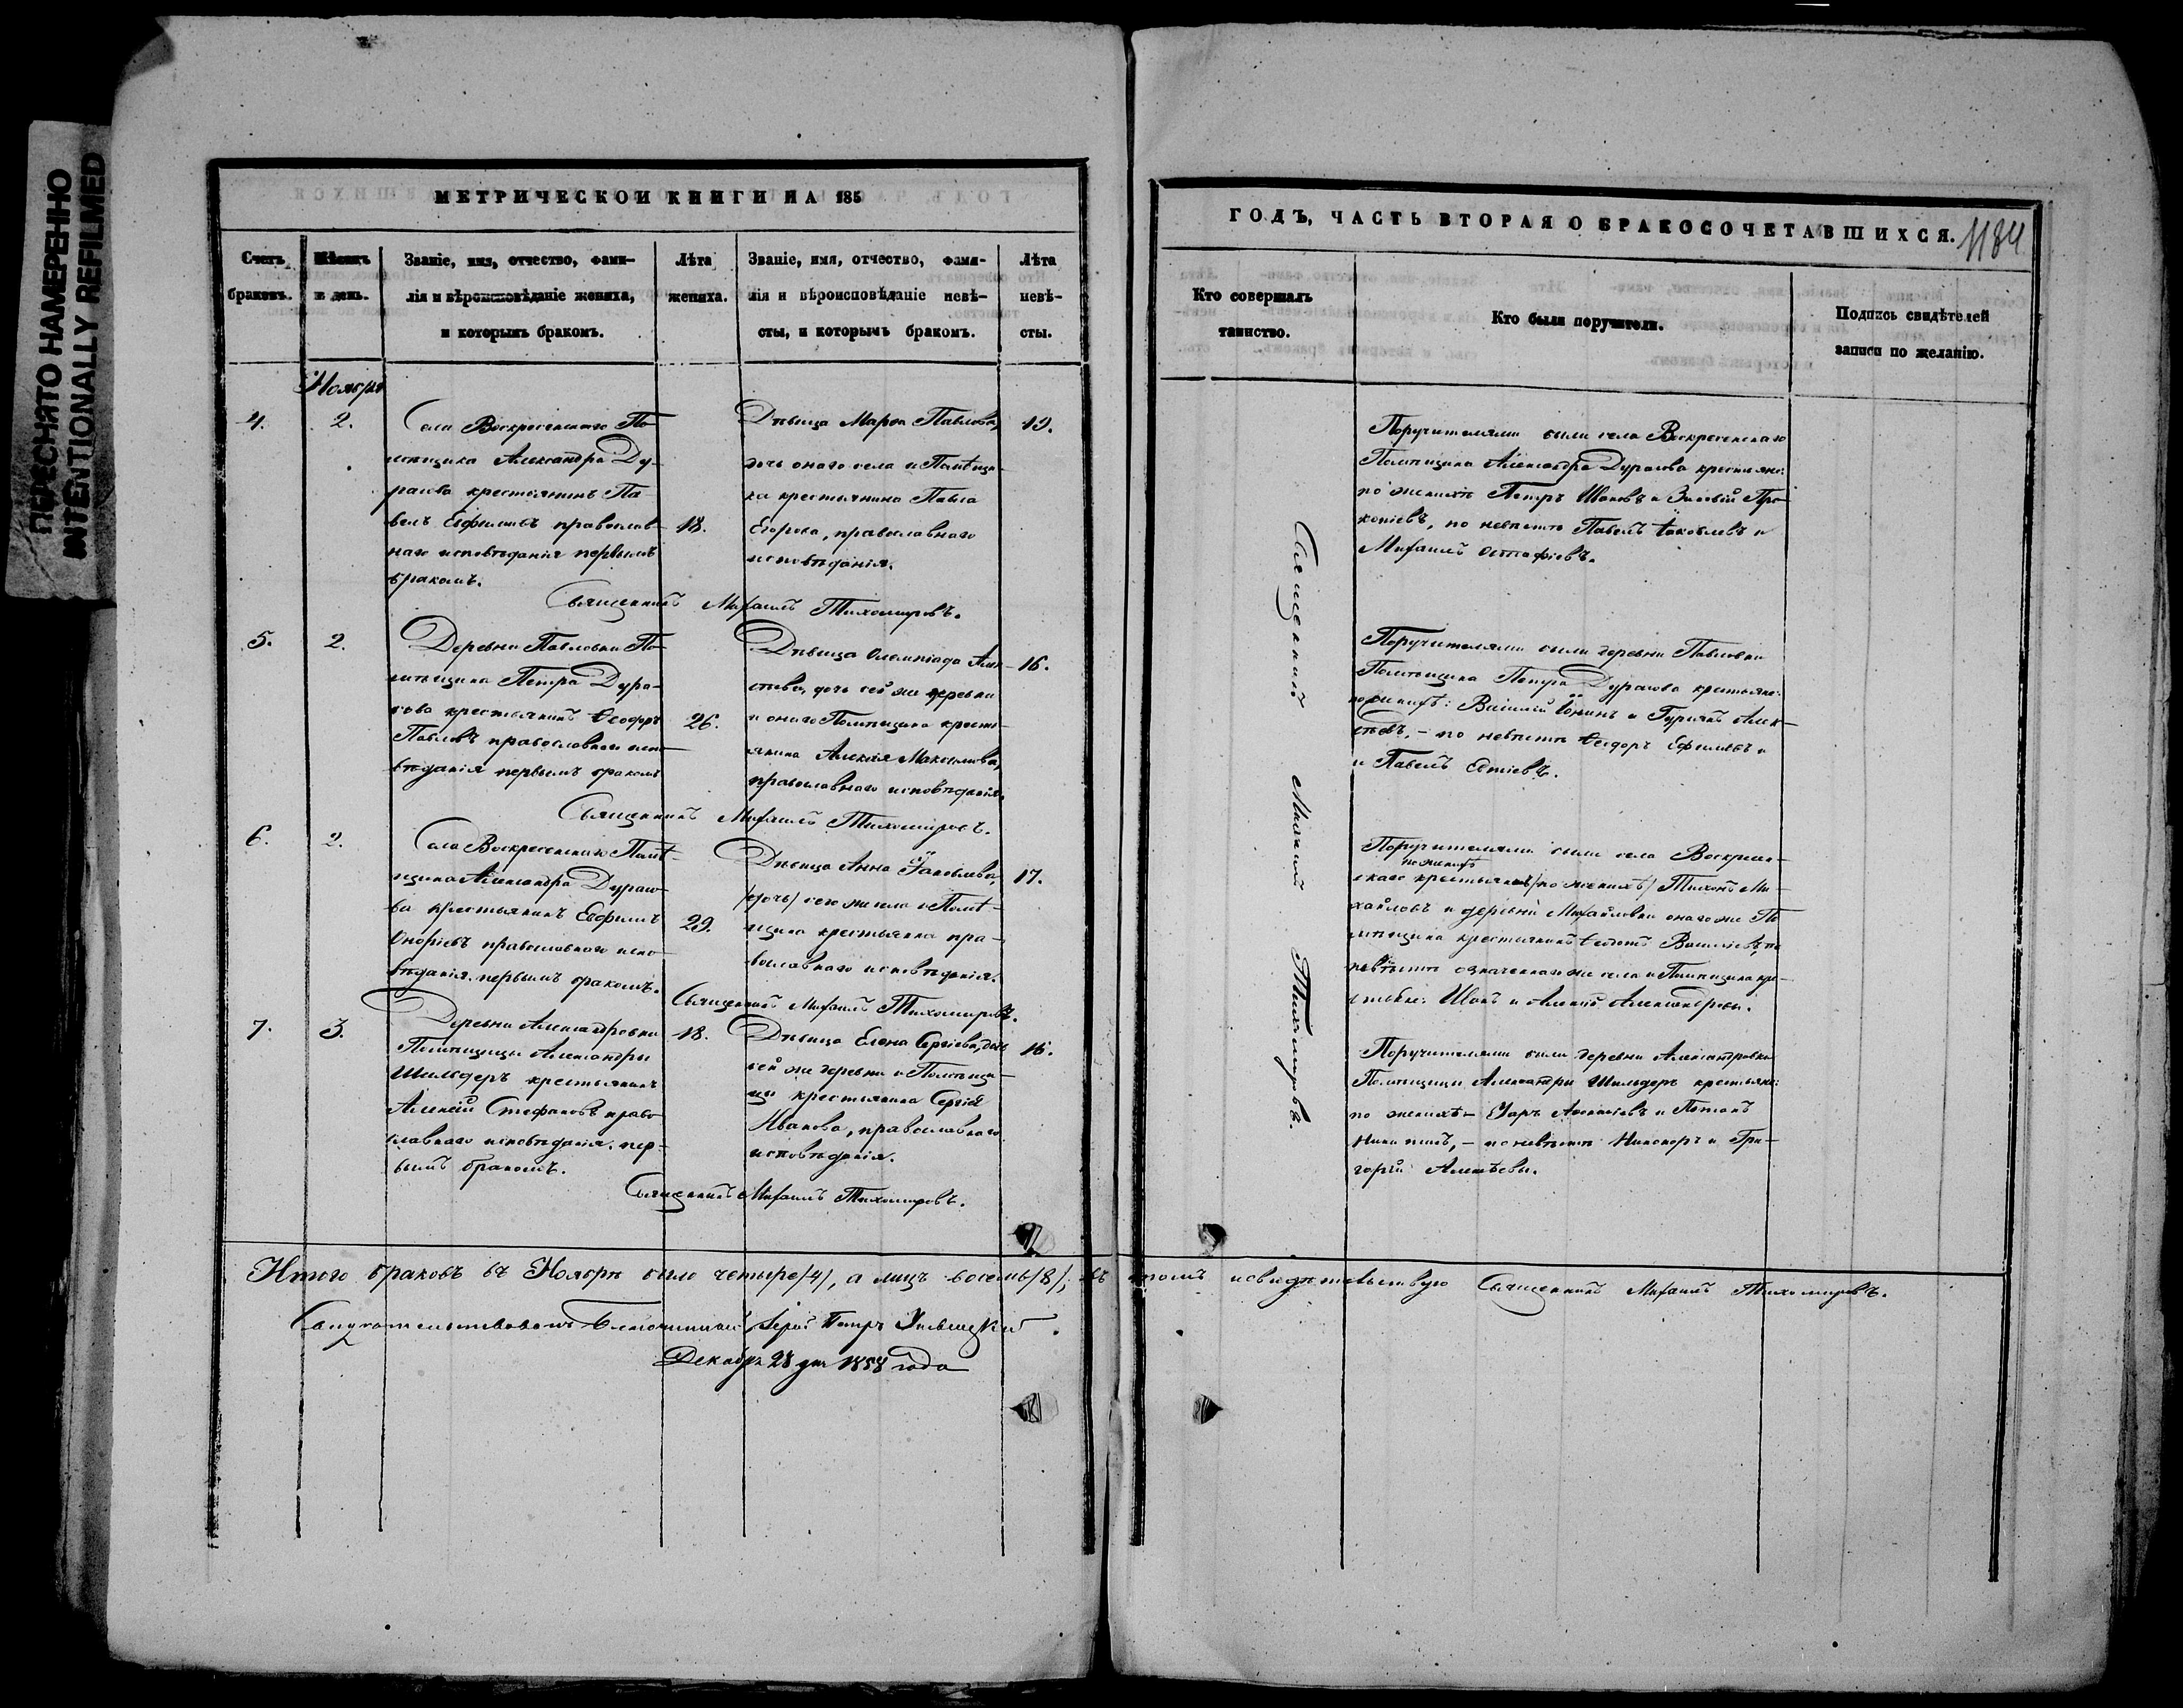 ПЕРЕСНЯТО НАМЕРЕННО
INTENTIONALLY REFILMED
МЕТРИЧЕСКОЙ КНИГИ НА 185
Счетъ браковъ.
Мѣсяцъ и день.
Званіе, имя, отчество, фами-
лія и вѣроисповѣданіе жениха,
и которымъ бракомъ.
Лѣта жениха.
Званіе, имя, отчество, фами-
лія и вѣроисповѣданіе невѣ-
сты, и которымъ бракомъ.
Лѣта невѣ-
сты.
Ноября
4.
2.
Села Воскресенскаго По-
мѣщика Александра Ду-
расова крестьянинъ Па-
велъ Евфимовъ православ-
наго исповѣданія первымъ
бракомъ.
18.
Дѣвица Марѳа Павлова,
дочь онаго села и Помѣщи-
ка крестьянина Павла
Егорова, православнаго
исповѣданія.
19.
Священникъ Михаилъ Тихомировъ.
5.
2.
Деревни Павловки По-
мѣщика Петра Дура-
сова крестьянинъ Ѳеодоръ
Павловъ православнаго испо-
вѣданія первымъ бракомъ
26.
Дѣвица Олимпіада Алек-
сѣева, дочь сей же деревни
и онаго Помѣщика кресть-
янина Алексія Максимова,
православнаго исповѣданія.
16.
Священникъ Михаилъ Тихомировъ.
6.
2.
Села Воскресенскаго Помѣ-
щика Александра Дурасо-
ва крестьянинъ Евфимъ
Онофріевъ православнаго испо-
вѣданія первымъ бракомъ.
29.
Дѣвица Анна Яковлева,
/дочь/ сего же села и Помѣ-
щика крестьянина пра-
вославнаго исповѣданія.
17.
Священникъ Михаилъ Тихомировъ.
7.
3.
Деревни Александровки
Помѣщицы Александры
Шильдеръ крестьянинъ
Алексій Стефановъ право-
славнаго исповѣданія пер-
вымъ бракомъ.
18.
Дѣвица Елена Сергіева, дочь
сей же деревни и Помѣщи-
цы крестьянина Сергія
Иванова, православнаго
исповѣданія.
16.
Священникъ Михаилъ Тихомировъ.
ГОДЪ, ЧАСТЬ ВТОРАЯ О БРАКОСОЧЕТАВШИХСЯ.
1184
Кто совершалъ
таинство.
Кто были поручители.
Подпись свидѣтелей
записи по желанію.
Священникъ Михаилъ Тихомировъ.
Поручителями были села Воскресенскаго
Помѣщика Александра Дурасова крестьяне:
по женихѣ Петръ Ивановъ и Зиновій Про-
копіевъ, по невѣстѣ Павелъ Яковлевъ и
Михаилъ Остафіевъ.
Поручителями были деревни Павловки
Помѣщика Петра Дурасова крестьяне:
по женихѣ: Василій и Гурій Алек-
сѣевъ, – по невѣстѣ Ѳеодоръ Ефимовъ и
и Павелъ
Поручителями были села Воскресен-
по женихѣ
скаго крестьянинъ /по женихѣ/ Тихонъ Ми-
хайловъ и деревни Михайловки онаго же По-
мѣщика крестьянинъ Василіевъ, по
невѣстѣ означеннаго же села и Помѣщика кре-
стьяне: Иванъ и Алексій Александровы.
Поручителями были деревни Александровки
Помѣщицы Александры Шильдеръ крестьяне:
по женихѣ – и Потапъ
Никитинъ, – по невѣстѣ Никаноръ и Гри-
горій Алексѣевы.
Итого браковъ въ Ноябрѣ было четыре /4/, а лицъ восемь /8/, въ томъ и свидѣтельствую Священникъ Михаилъ Тихомировъ.
Свидѣтельствовалъ Благочинный Іерей Петръ
Декабря 28 дня 1858 года